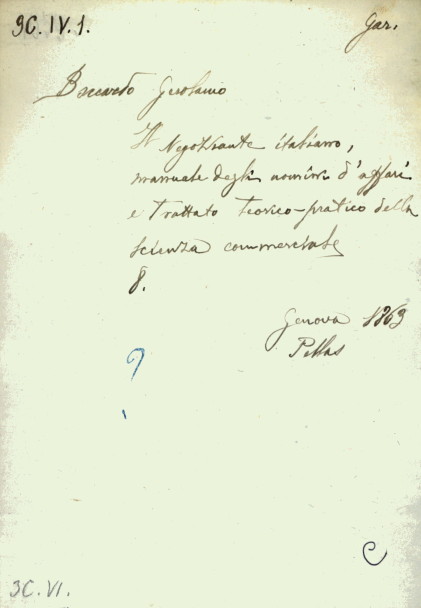 3C. IV. 1.
Gar.
Boccardo Gerolamo
Il Negoziante italiano,
manuale degli uomini d'affari
e trattato teorico-pratico della
scienza commerciale
8.
Genova 1863
Pellas
?
C
3C. VI.